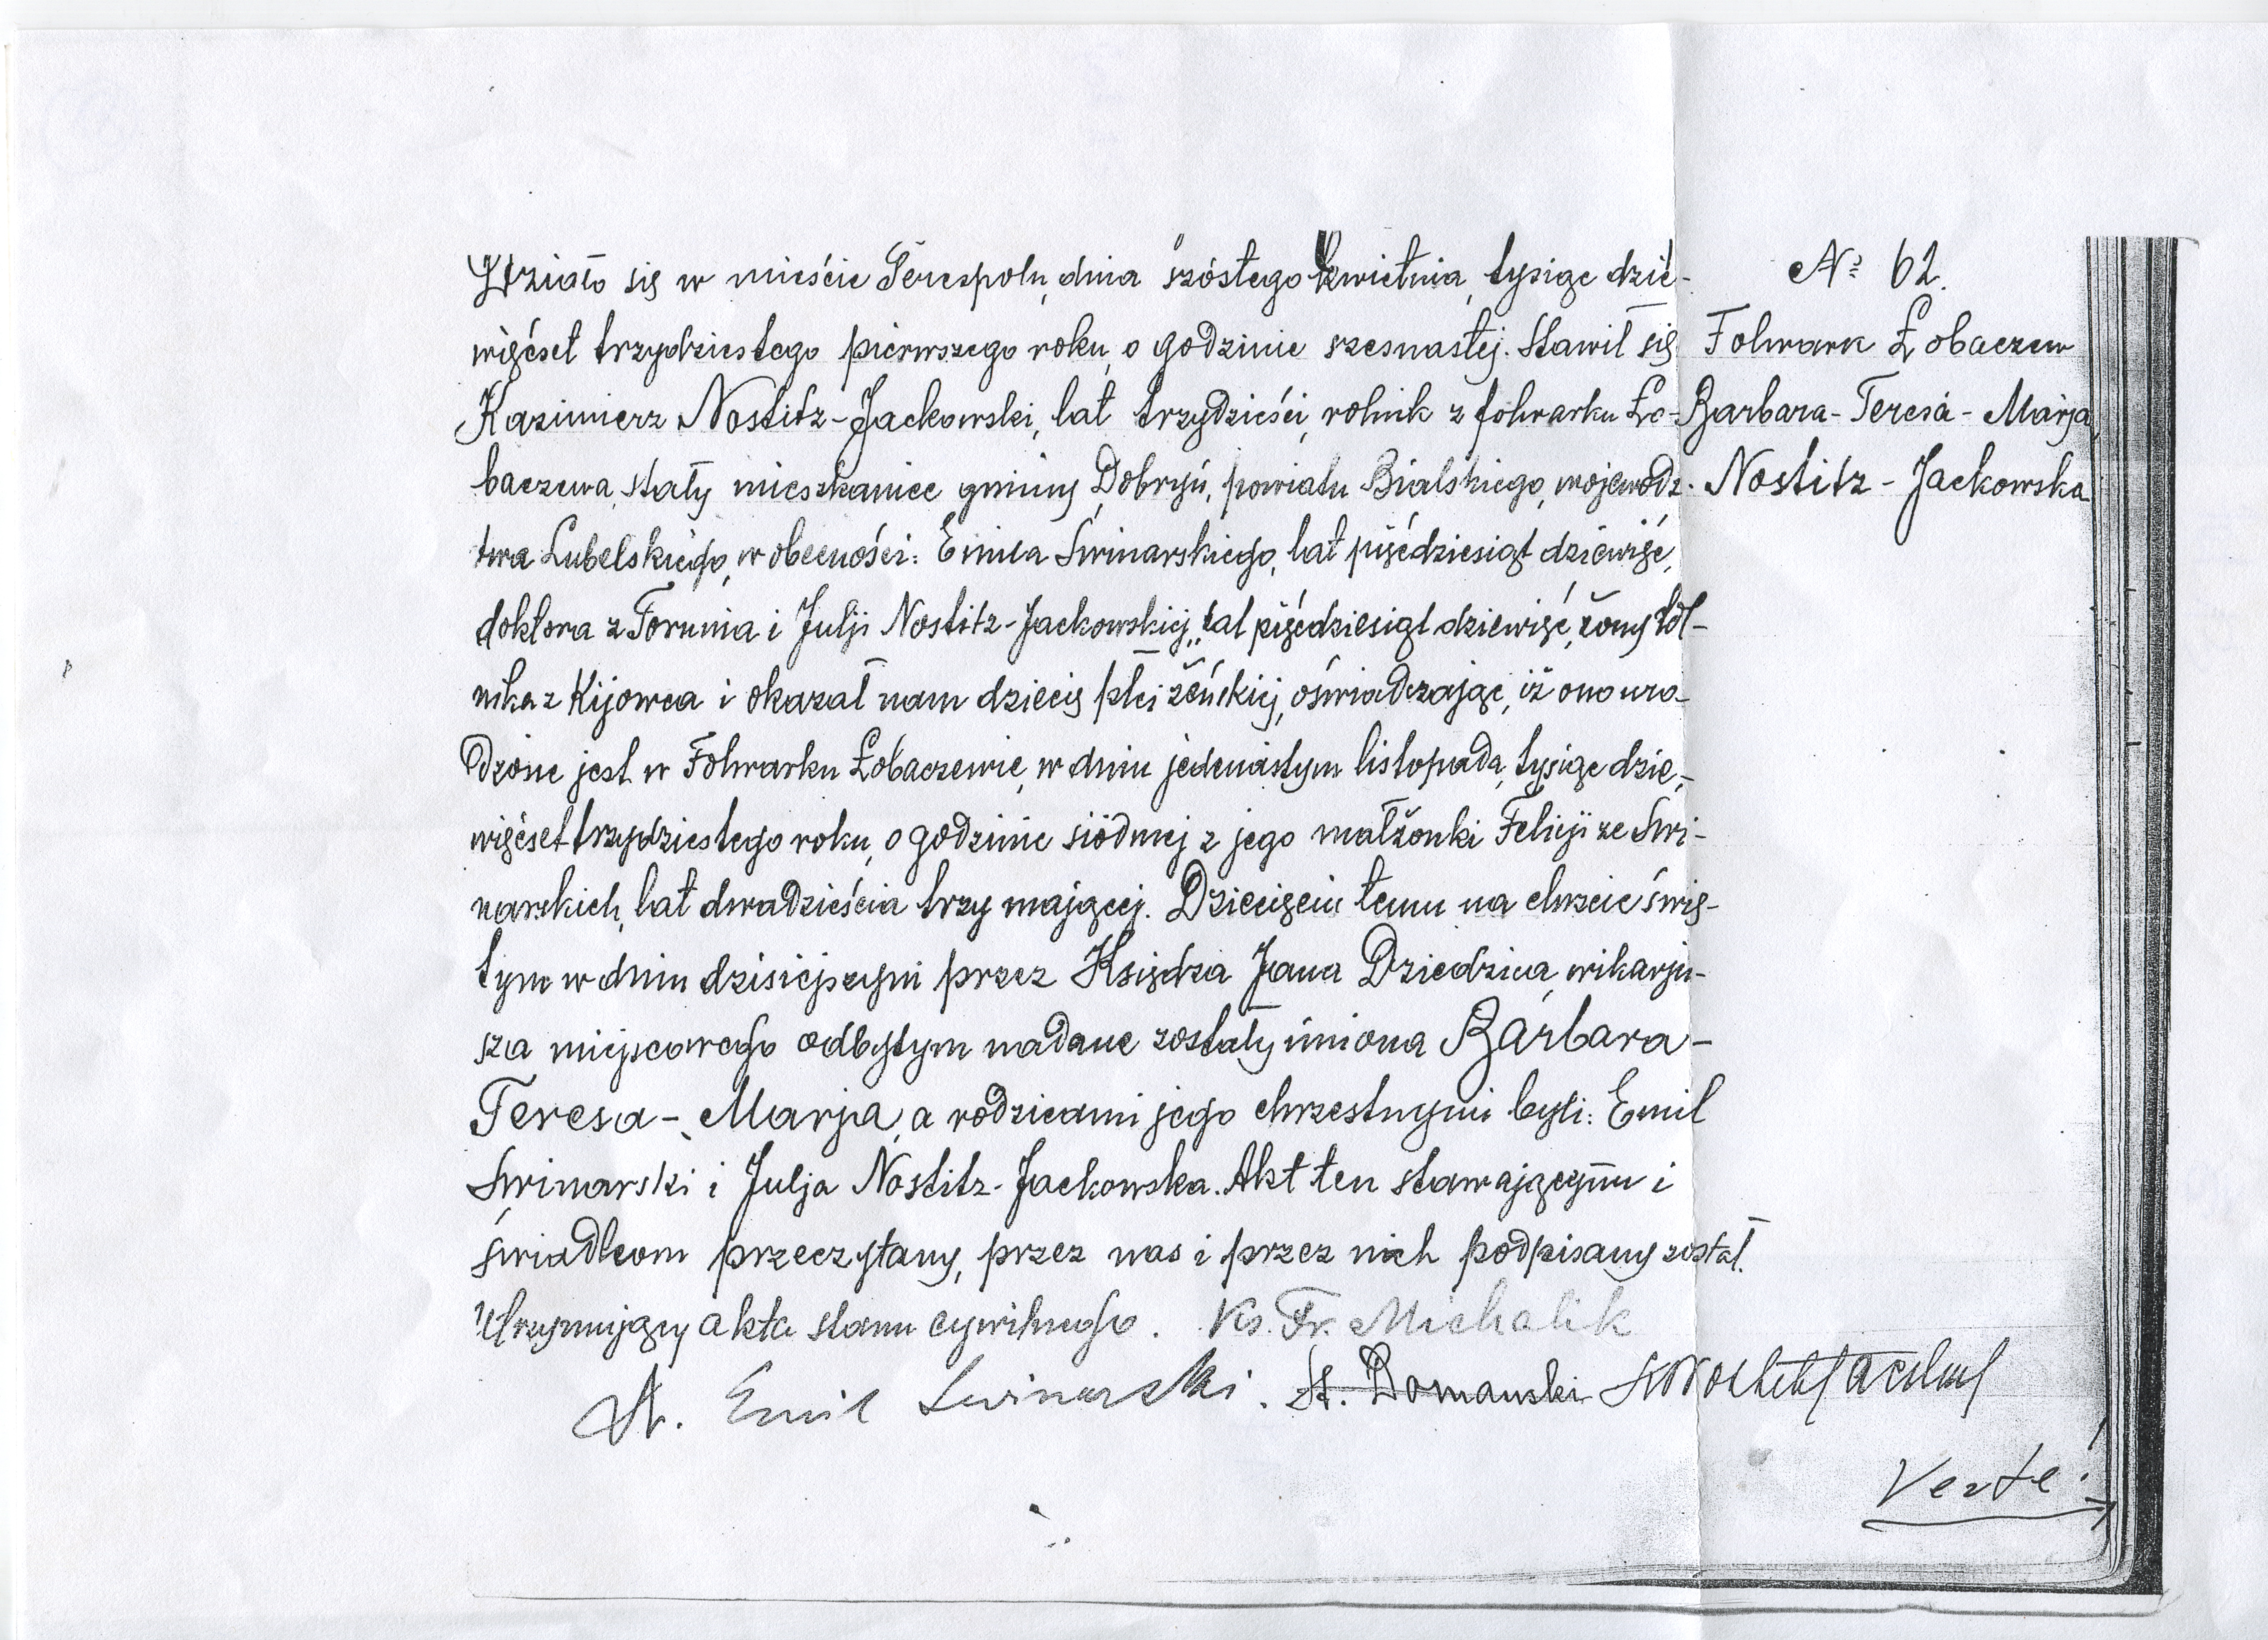 Działo się w mieście Terespolu, dnia szóstego kwietnia, tysiąc dzie-
więćset trzydziestego pierwszego roku, o godzinie szesnastej. Stawił się
Kazimierz Nostitz-Jackowski, lat trzydzieści, rolnik z folwarku Ło-
baczewa, stały mieszkaniec gminy Dobryń, powiatu Bialskiego, wojewódz-
twa Lubelskiego, w obecności: Emila Swinarskiego, lat pięćdziesiąt dziewięć,
doktora z Torunia i Julji Nostitz-Jackowskiej, lat pięćdziesiąt dziewięć, żony rol-
nika z Kijowca i okazał nam dziecię płci żeńskiej, oświadczając, iż ono uro-
dzone jest w Folwarku Łobaczewie, w dniu jedenastym listopada, tysiąc dzie-
więćset trzydziestego roku, o godzinie siódmej z jego małżonki Felicji ze Swi-
narskich, lat dwadzieścia trzy mającej. Dziecięciu temu na chrzcie świę-
tym w dniu dzisiejszym przez Księdza Jana Dziedzica, wikarju-
sza miejscowego odbytym nadane zostały imiona Barbara-
Teresa-Marja, a rodzicami jego chrzestnymi byli: Emil
Swinarski i Julja Nostitz-Jackowska. Akt ten stawającymu i
świadkom przeczytany, przez nas i przez nich podpisany został.
Utrzymujący akta stanu cywilnego. Ks. Fr. Michalik
Emil Swinarski. St. Domanski
Verte!
№ 62.
Folwark Łobaczew
Barbara-Teresa-Marja,
Nostitz-Jackowska